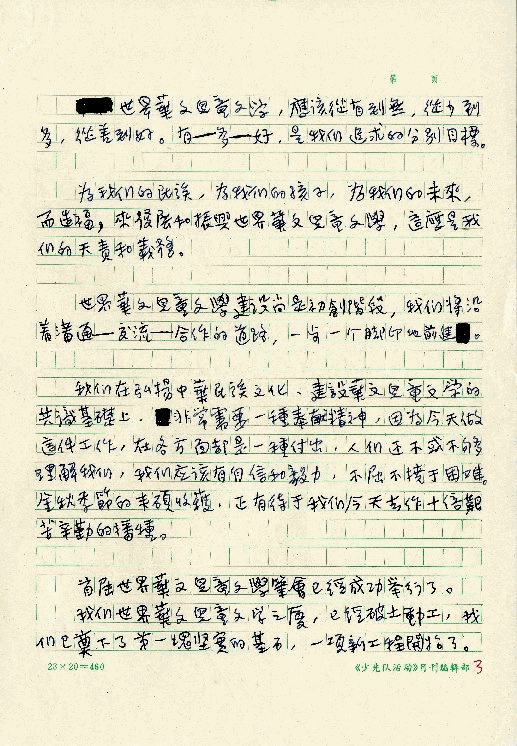 第 页
世界華文児童文学，應該從有到無，從少到
多，從差到好。有—多—好，是我们追求的分别目標。
为我们的民族，为我们的孩子，为我们的未来，
而造福，来發展和振興世界華文児童文學，這應是我
们的天責和義務。
世界華文児童文學建設尚是初創階段，我们将沿
着溝通—交流—合作的道路，一步一个脚印地前進。
我们在弘揚中華民族文化、建設華文児童文学的
共識基礎上，非常需要一種奉献精神，因为今天做
這件工作，在各方面都是一種付出，人们还不或不能
理解我们，我们应该有自信和毅力，不屈不撓于困难。
金秋季節的丰碩收穫，正有待于我们今天去作十倍艱
苦辛勤的播種。
首屆世界華文児童文學筆會已經成功举行了。
我们世界華文児童文学之厦，已經破土動工，我
们已奠下了第一塊坚實的基石，一項新工程開始了。
23×20=460
《少先队活动》月刊编辑部 3